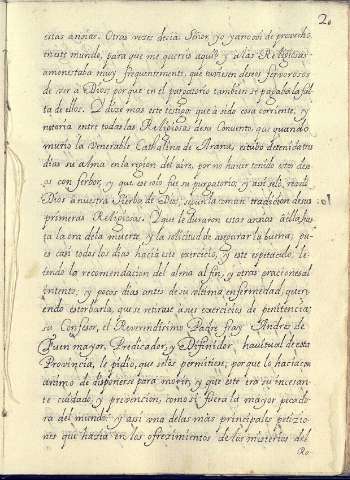 2.
estas annias. Otras veces decia: Señor, yo ya no soi de provecho
en este mundo, para que me quereis aqui? y a las Religiosas
amonestaba muy frequentemente, que tuviesen deseos fervorosos
de ver a Dios; porque en el purgatorio tambien se pagaba la fal
ta de ellos. Y dize mas este testigo: que a sido cosa corriente, y
notoria entre todas las Religiosas deste Convento, que quando
murio la Venerable Cathalina de Arana, estubo detenida tres
dias su alma en la region del aire, por no haver tenido estos dese
os con ferbor, y que ese solo fue su purgatorio; y asi se lo reveló
Dios a nuestra Sierba de Dios, segun la comun tradicion destas
primeras Religiosas. Y que le duraron estas ansias a ella has
ta la ora de la muerte, y la solicitud de asegurar la buena; pu
es casi todos los dias hacia este exercicio, y este espectaculo, le
iendo la recomendacion del alma al fin, y otras oraciones al
intento; y pocos dias antes de su ultima enfermedad, queri
endo estorbarla, que se retirase a sus exercicios de penitencia
su Confesor, el Reverendisimo Padre fray Andres de
Fuen mayor, Predicador, y Difinidor habitual de esta
Provincia, le pidio, que se los permitiese; porque lo hacia con
animo de disponerse para morir, y que este era su incesan
te cuidado, y prevencion, como si fuera la mayor pecado
ra del mundo: y asi una de las mas principales peticio
nes que hazia en los ofrecimientos de los misterios del
Ro